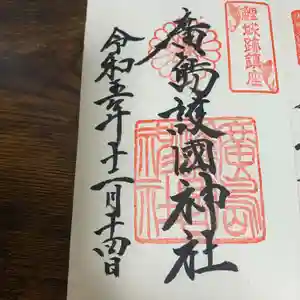 鯉城跡鎮座
廣島護國神社
廣島
神社
令和五年十一月十四日